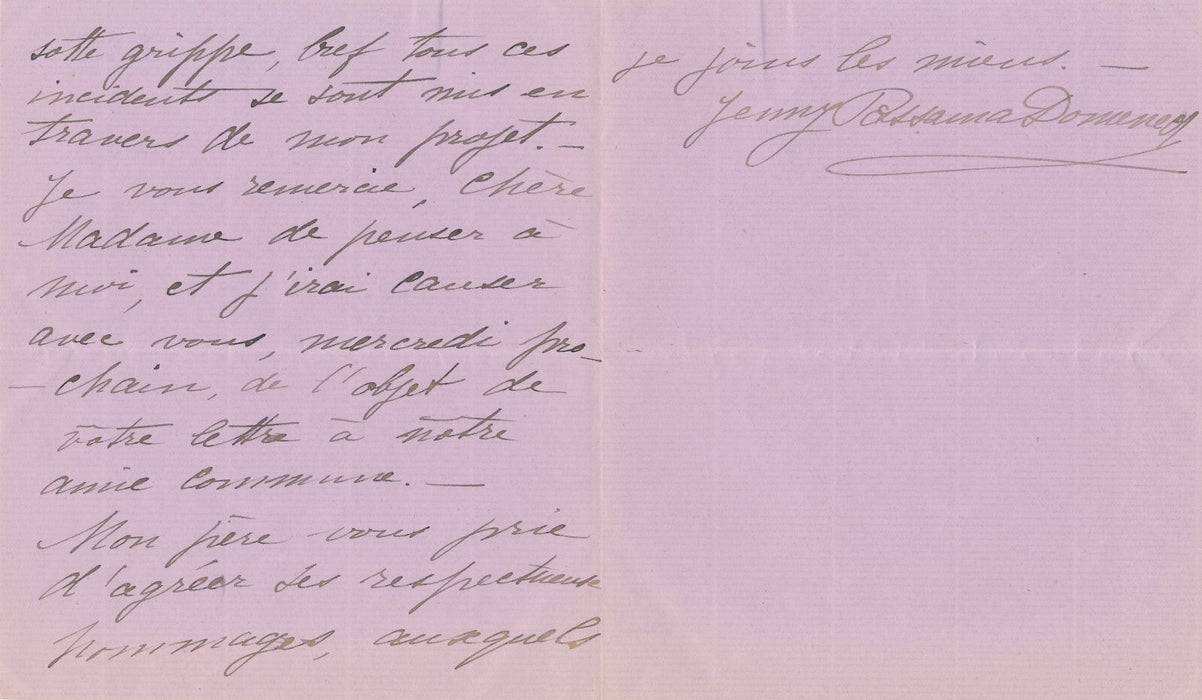 sotte grippe, bref tous ces
incidents se sont mis en
travers de mon projet. —
Je vous remercie, Chère
Madame de penser à
moi, et j'irai causer
avec vous, mercredi pro-
— chain, de l'objet de
vôtre lettre à nôtre
amie commune. —
Mon père vous prie
d'agréer ses respectueux
hommages, auxquels
je joins les miens. —
Jenny Passama Domenech